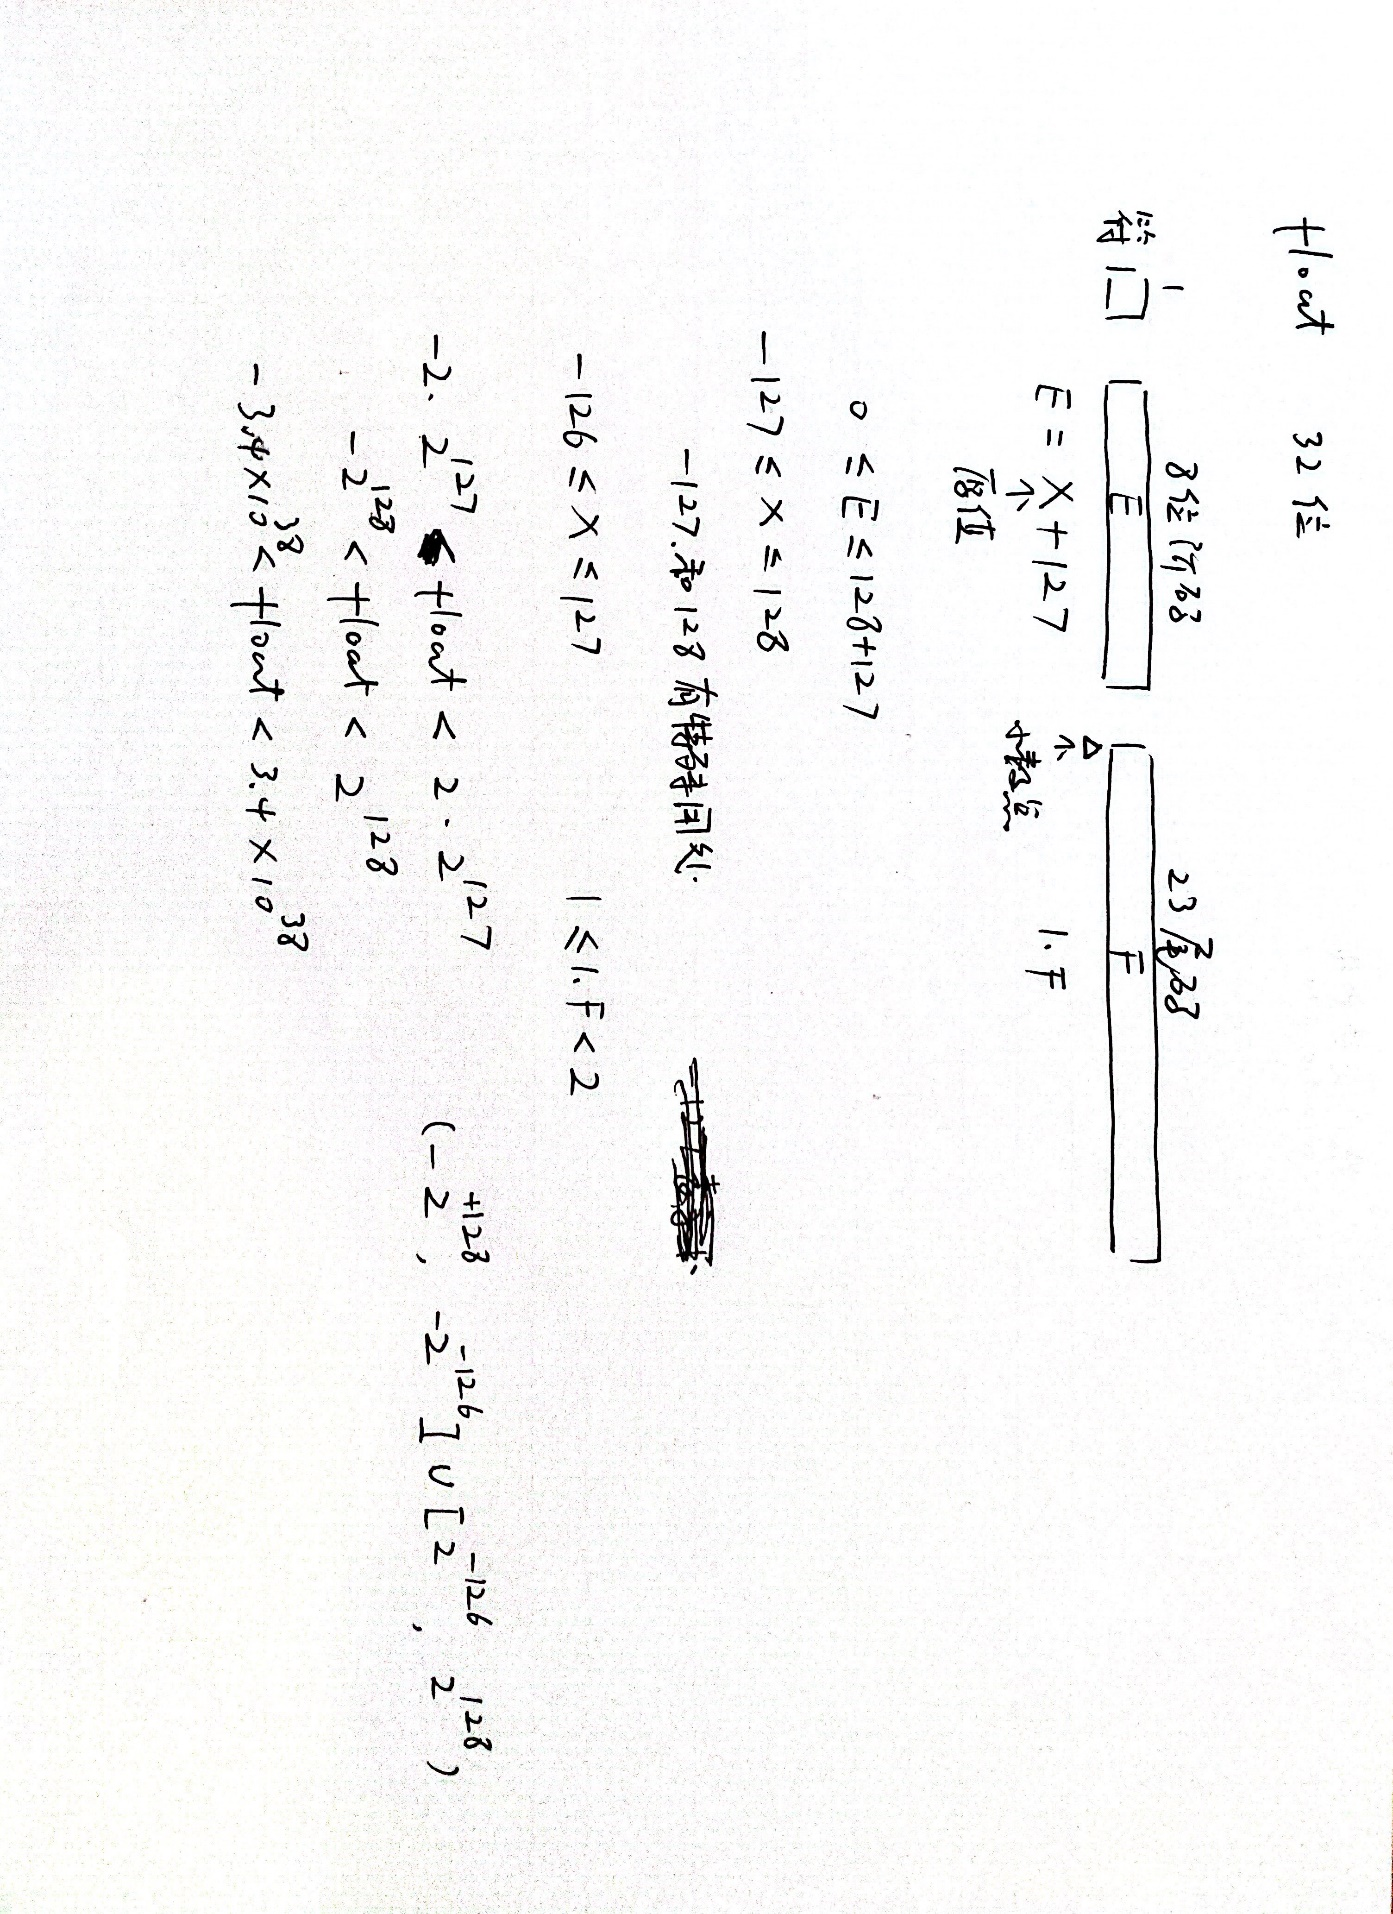 float 32位
1 8位阶码 23尾码
符 E F
E = X + 127 1.F
↑ ↑
偏值 小数点
0 ≤ E ≤ 128+127
-127 ≤ X ≤ 128
-127和128有特殊用处.
-126 ≤ X ≤ 127 1 ≤ 1.F < 2
-2·2^127 < float < 2·2^127 (-2^+128, -2^-126] ∪ [2^-126, 2^128)
-2^128 < float < 2^128
-3.4×10^38 < float < 3.4×10^38